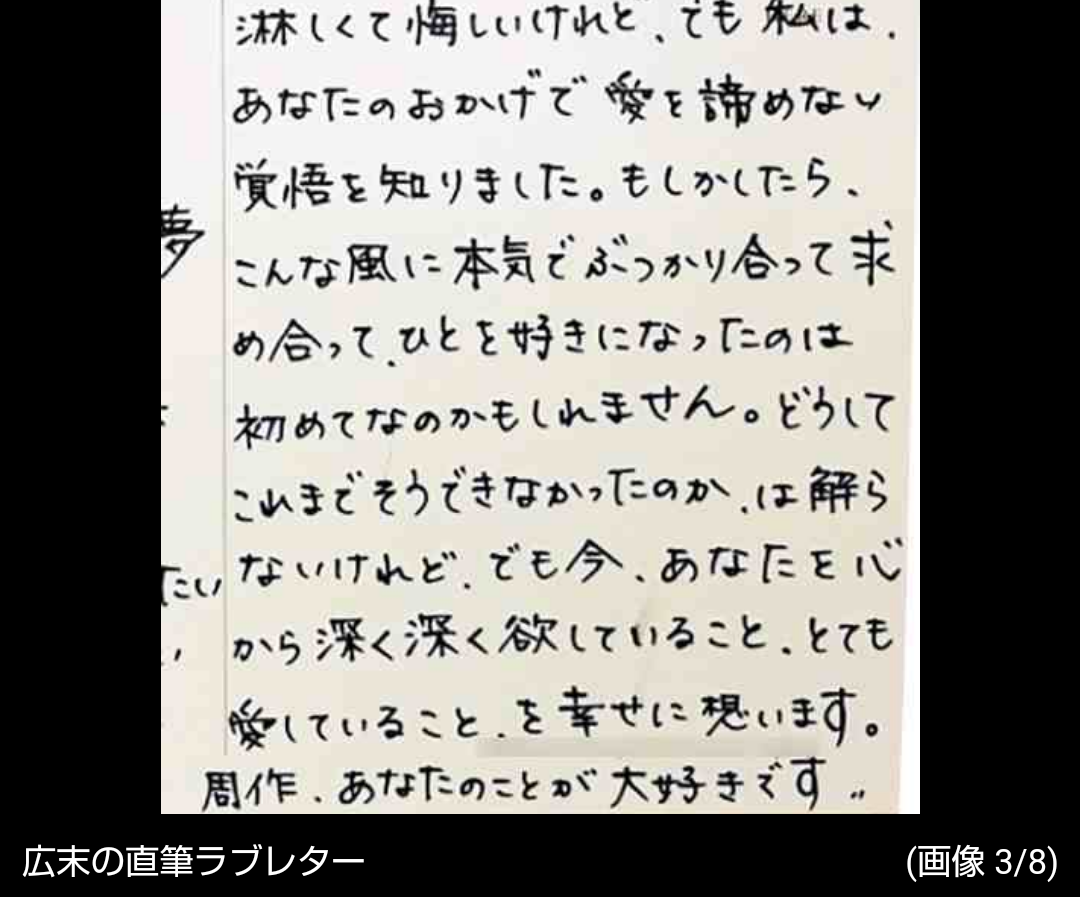 淋しくて悔しいけれど、でも私は、
あなたのおかげで愛を諦めない
覚悟を知りました。もしかしたら、
こんな風に本気でぶつかり合って求
め合って、ひとを好きになったのは
初めてなのかもしれません。どうして
これまでそうできなかったのか、は解ら
ないけれど、でも今、あなたを心
から深く深く欲していること、とても
愛していること、を幸せに想います。
周作、あなたのことが大好きです〃
夢
たい
広末の直筆ラブレター
(画像 3/8)